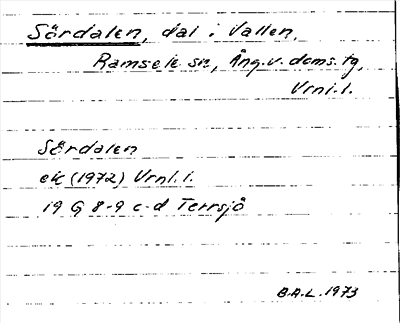 Sördalen, dal i Vallen,
Ramsele sn, Ång.v. doms. tg,
Vrnl. l.
Sördalen
ek (1972) Vrnl. l.
19 G 8-9 c-d Terrsjö
B.A.L. 1973